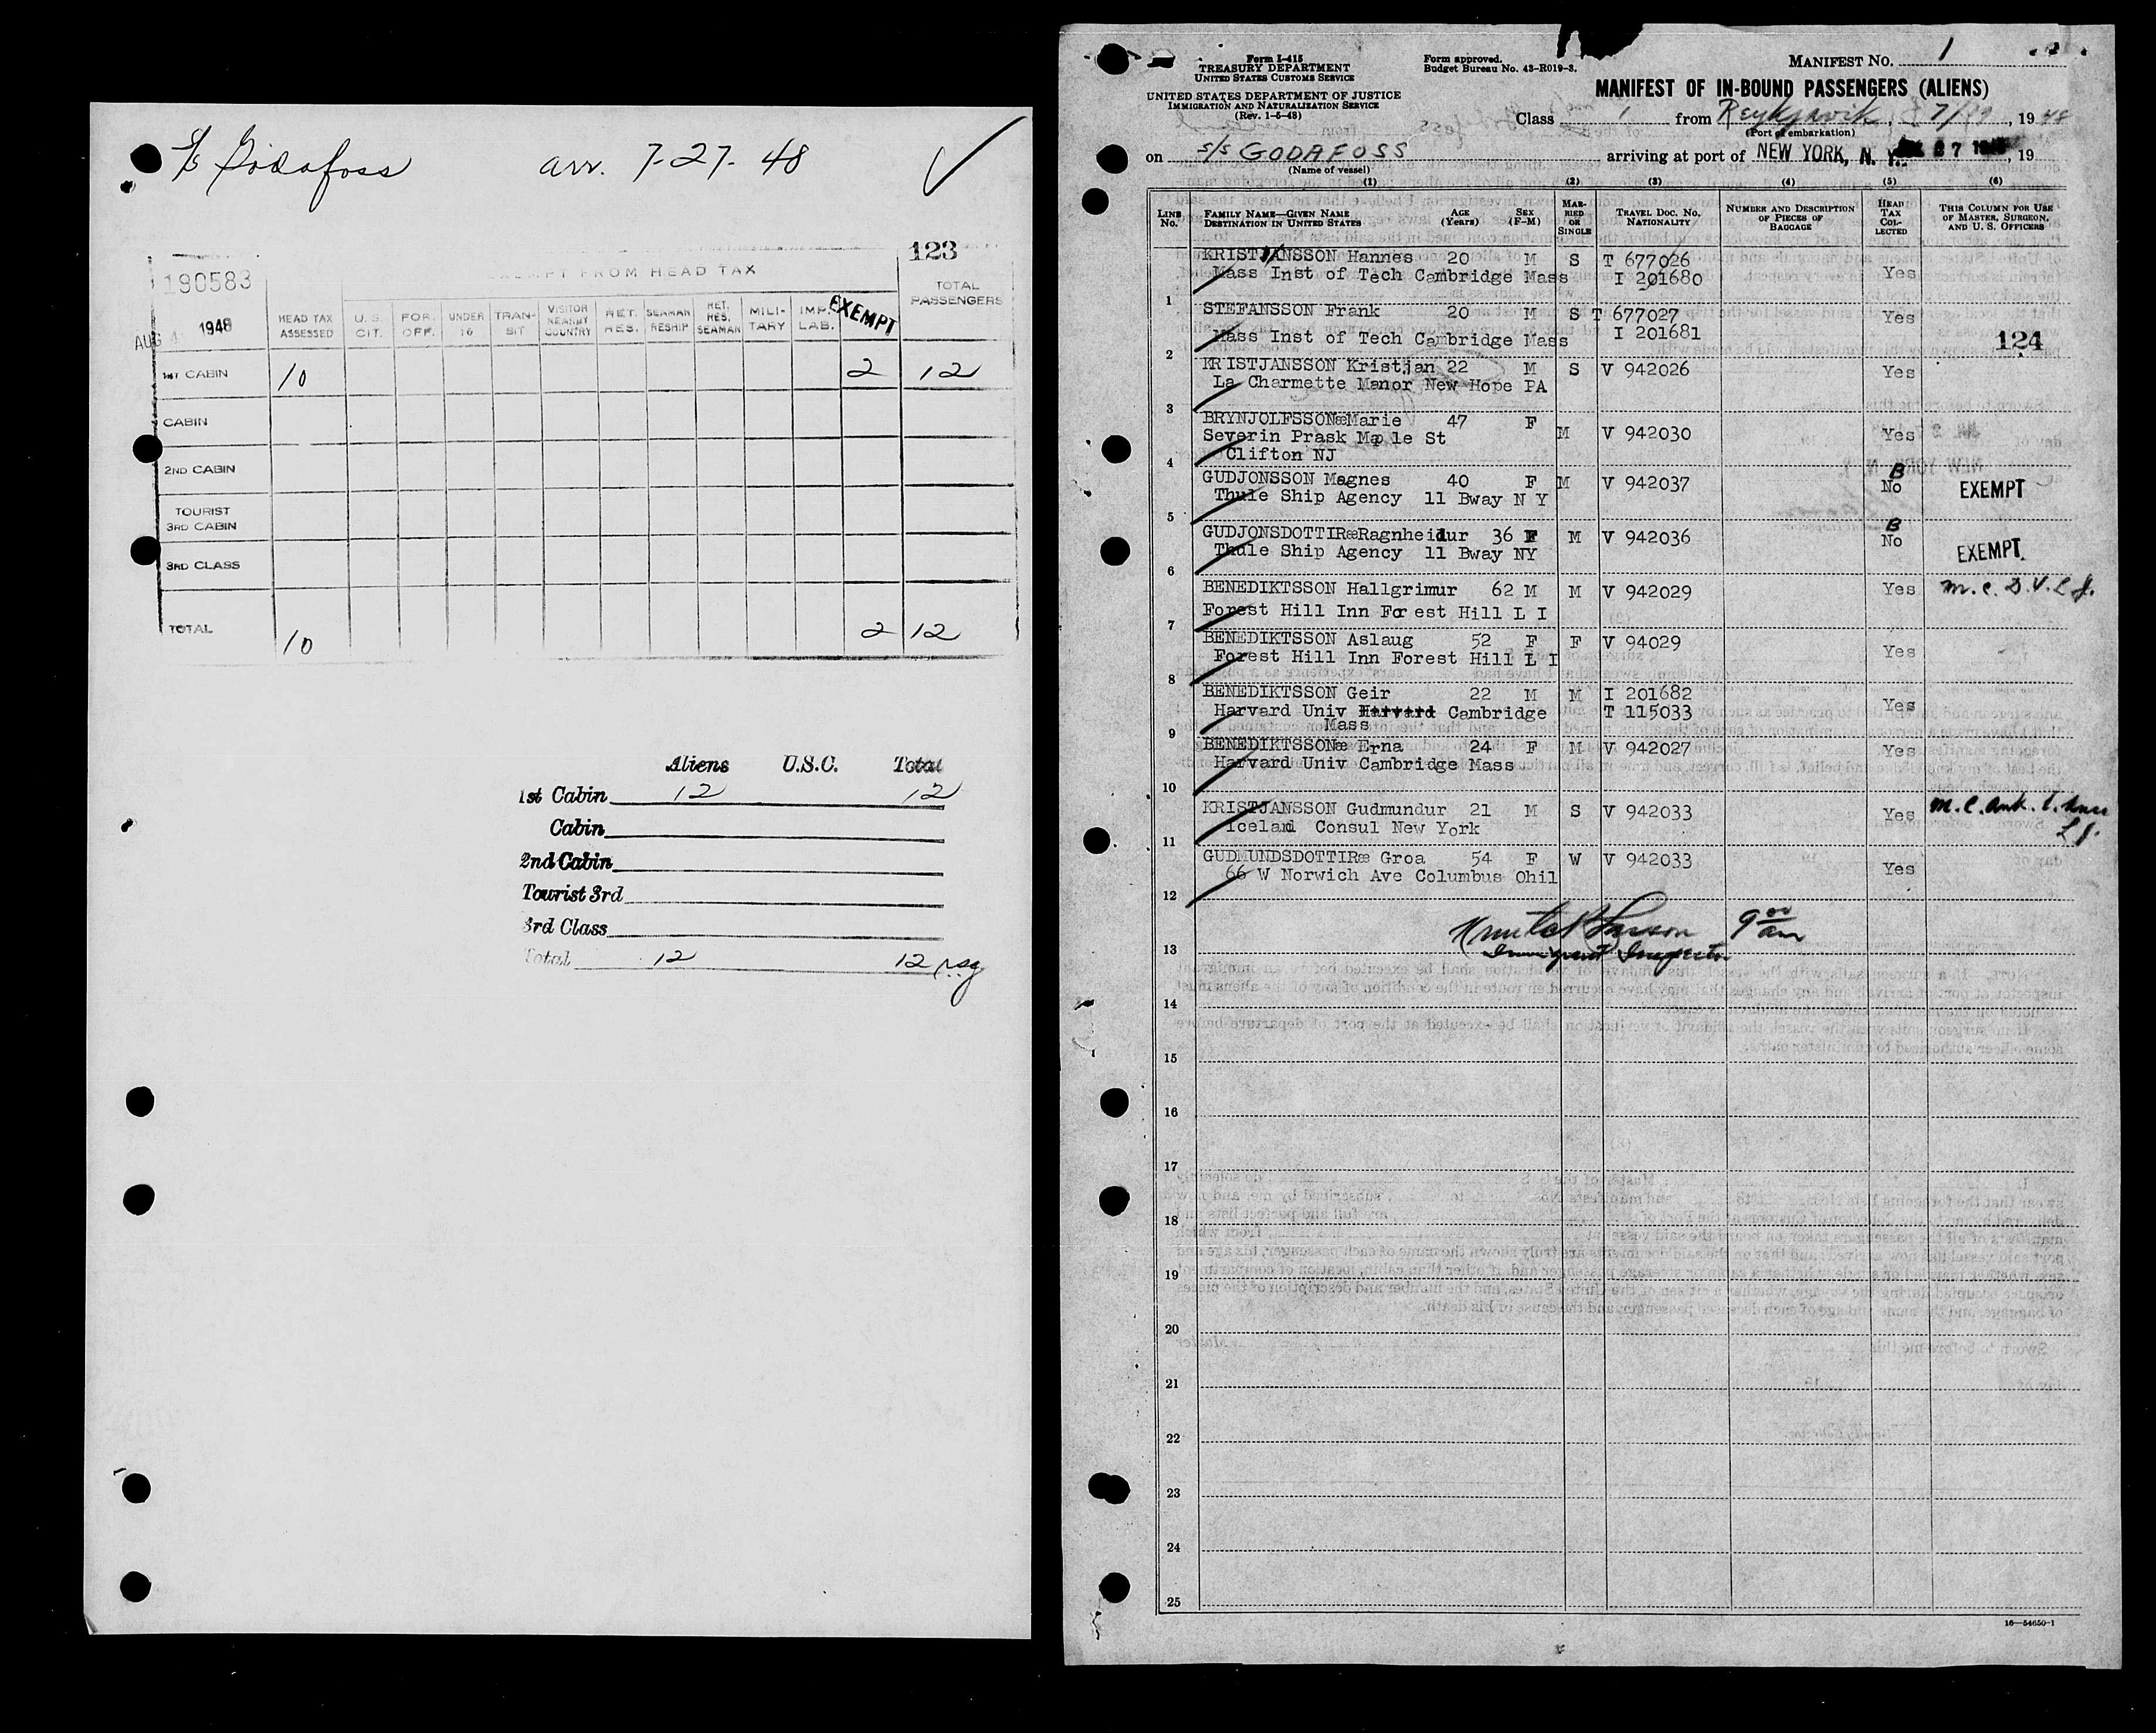 S/s Godafoss arr. 7-27-48
123
190583
EXEMPT FROM HEAD TAX
AUG 4 1948
HEAD TAX ASSESSED
U.S. CIT.
FOR. OFF.
UNDER 16
TRAN-SIT
VISITOR NEARBY COUNTRY
RET. RES.
SEAMAN RESHIP
RET. RES. SEAMAN
MILI-TARY
IMP. LAB.
EXEMPT
TOTAL PASSENGERS
1ST CABIN 10 2 12
CABIN
2ND CABIN
TOURIST
3RD CABIN
3RD CLASS
TOTAL 10 2 12
Aliens U.S.C. Total
1st Cabin 12 12
Cabin
2nd Cabin
Tourist 3rd
3rd Class
Total 12 12
Form I-415
TREASURY DEPARTMENT
UNITED STATES CUSTOMS SERVICE
UNITED STATES DEPARTMENT OF JUSTICE
IMMIGRATION AND NATURALIZATION SERVICE
(Rev. 1-5-48)
Form approved.
Budget Bureau No. 43-R019-3.
MANIFEST NO. 1
MANIFEST OF IN-BOUND PASSENGERS (ALIENS)
Class 1 from Reykjavik, 7/19, 1948
(Port of embarkation)
on S/S GODAFOSS arriving at port of NEW YORK, N. Y. 27, 19
(Name of vessel)
(1) (2) (3) (4) (5) (6)
LINE No.
FAMILY NAME—GIVEN NAME
DESTINATION IN UNITED STATES
AGE (Years)
SEX (F-M)
MAR-RIED OR SINGLE
TRAVEL DOC. NO. NATIONALITY
NUMBER AND DESCRIPTION OF PIECES OF BAGGAGE
HEAD TAX COL-LECTED
THIS COLUMN FOR USE OF MASTER, SURGEON, AND U. S. OFFICERS
KRISTJANSSON Hannes 20 M S T 677026
Mass Inst of Tech Cambridge Mass I 201680 Yes
1
STEFANSSON Frank 20 M S T 677027 Yes
Mass Inst of Tech Cambridge Mass I 201681
124
2
KRISTJANSSON Kristjan 22 M S V 942026 Yes
La Charmette Manor New Hope PA
3
BRYNJOLFSSONæMarie 47 F
Severin Prask Maple St M V 942030 Yes
Clifton NJ
4
GUDJONSSON Magnes 40 F M V 942037 B No EXEMPT
Thule Ship Agency 11 Bway N Y
5
GUDJONSDOTTIRæRagnheidur 36 F M V 942036 B No
Thule Ship Agency 11 Bway NY EXEMPT.
6
BENEDIKTSSON Hallgrimur 62 M M V 942029 Yes M.C. D.V.L J.
Forest Hill Inn Forest Hill L I
7
BENEDIKTSSON Aslaug 52 F F V 94029
Forest Hill Inn Forest Hill L I Yes
8
BENEDIKTSSON Geir 22 M M I 201682
Harvard Univ Harvard Cambridge T 115033 Yes
Mass
9
BENEDIKTSSONæ Erna 24 F M V 942027 Yes
Harvard Univ Cambridge Mass
10
KRISTJANSSON Gudmundur 21 M S V 942033 Yes M.C. Ank.
Iceland Consul New York L J.
11
GUDMUNDSDOTTIRæ Groa 54 F W V 942033
66 W Norwich Ave Columbus Ohil Yes
12
9 00 am
Immigrant Inspector
13
14
15
16
17
18
19
20
21
22
23
24
25
16—54650-1